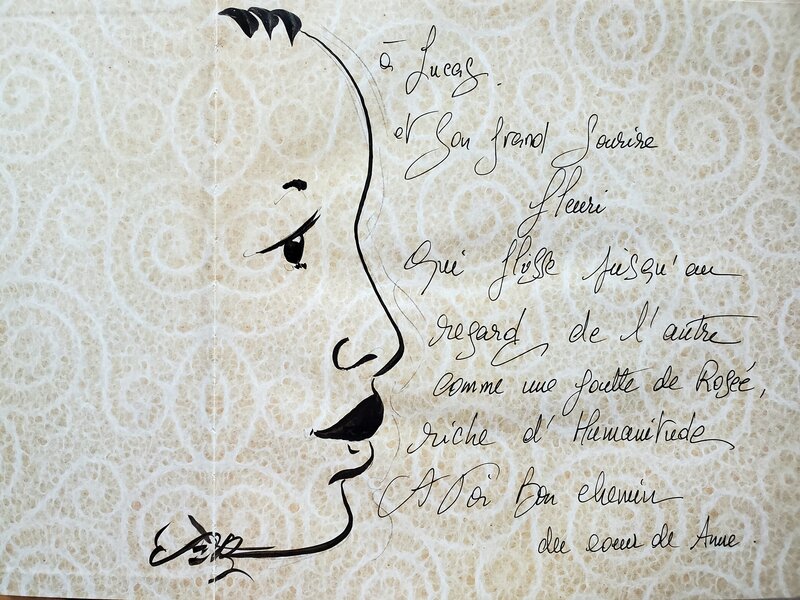 à Lucas.
et Son grand Sourire
fleuri
qui glisse jusqu'au
regard de l'autre
comme une goutte de Rosée,
riche d'Humanitude
A Toi Bon chemin
du coeur de Anne.